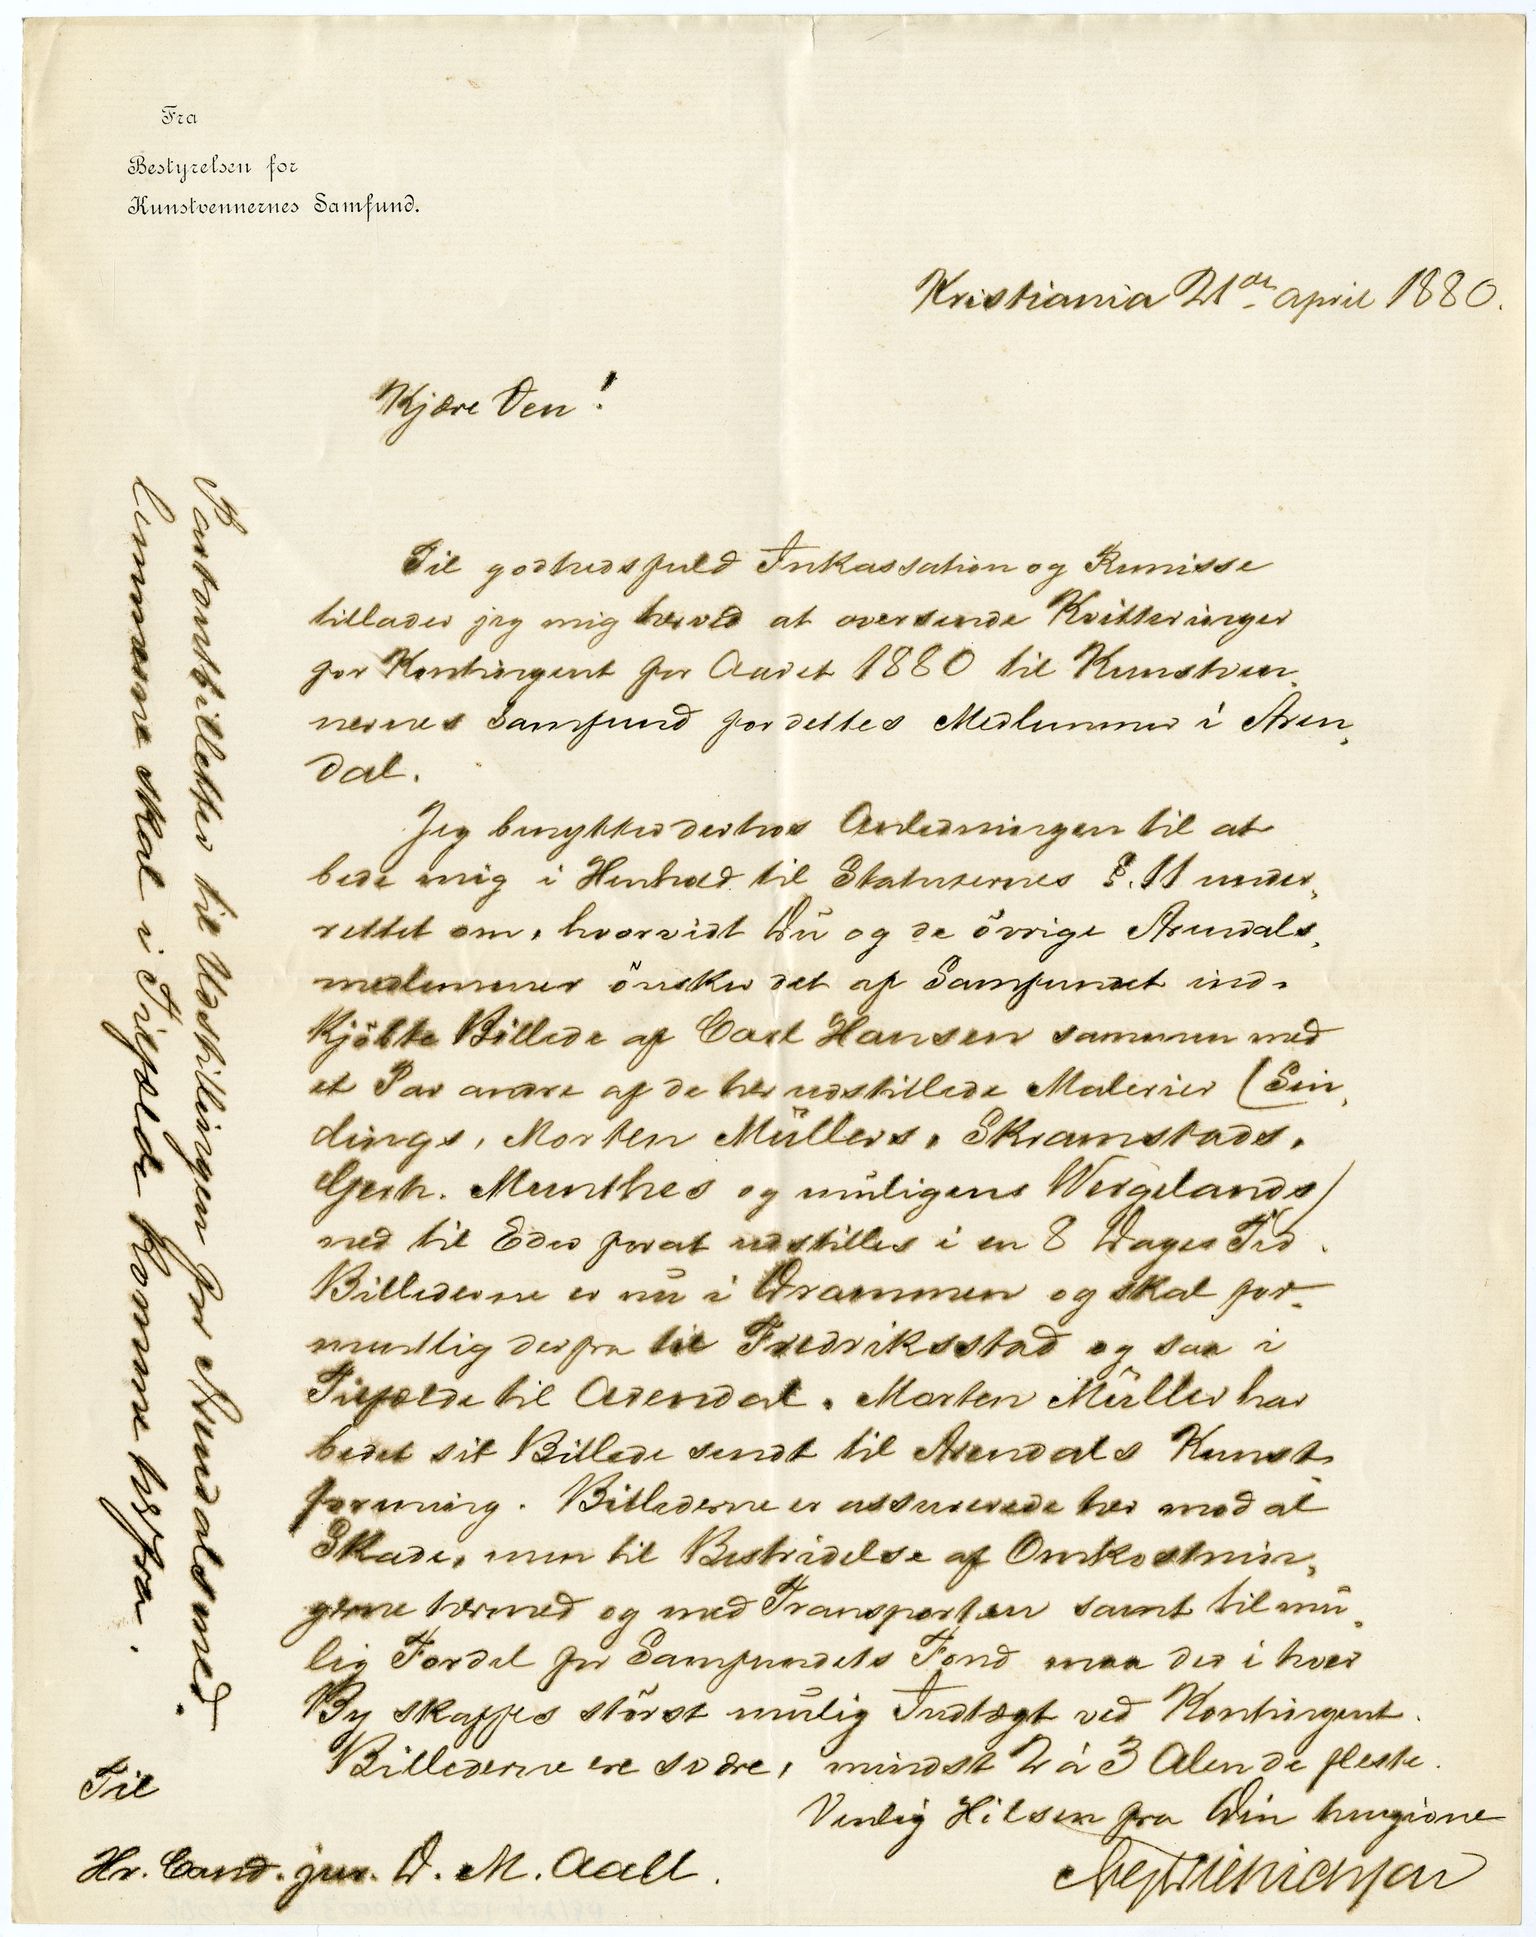 Fra
Bestyrelsen for
Kunstvennernes Samfund.
Kristiania 21de April 1880.
Kjære Ven!
Til godhedsfuld Inkassation og Remisse
tillader jeg mig herved at oversende Kvitteringer
for Kontingent for Aaret 1880 til Kunstven„
nernes Samfund for dettes Medlemmer i Aren„
dal.
Jeg benytter derhos Anledningen til at
bede mig i Henhold til Statuternes §. 11 under„
rettet om, hvorvidt Du og de övrige Arendals„
medlemmer önsker det af Samfundet ind„
kjöbte Billede af Carl Hansen sammen med
et Par andre af de her udstillede Malerier (Sin„
dings, Morten Müllers, Skramstads,
Gerh. Munthes og muligens Wergelands)
ned til Eder forat udstilles i en 8 Dages Tid.
Billederne er nu i Drammen og skal for„
mentlig derfra til Fredriksstad og saa i
Tilfælde til Arendal. Morten Müller har
bedet sit Billede sendt til Arendals Kunst„
forening. Billederne er assurerede her mod al
Skade, men til Bestridelse af Omkostnin„
gerne hermed og med Transporten samt til mu„
lig Fordel for Samfundets Fond maa der i hver
By skaffes störst mulig Indtægt ved Kontingent.
Billederne ere svære, mindst 2 à 3 Alen de fleste.
Venlig Hilsen fra Din hengivne
Til
Hr. Cand. jur. D. M. Aall.
Partoutbilletter til Udstillingen for Arendalsmed„
lemmerne skal i Tilfælde komme herfra.